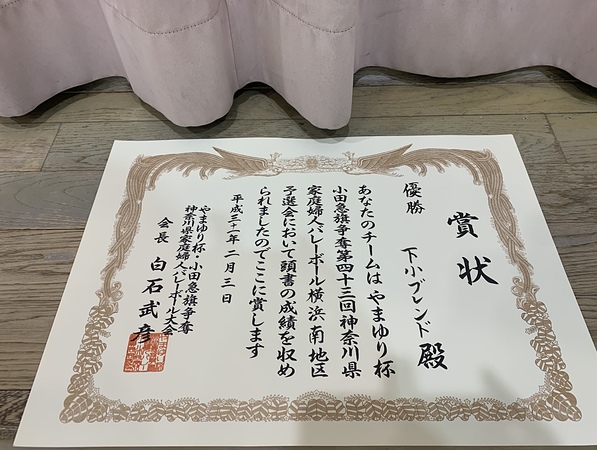 賞状
優勝
下小ブレンド殿
あなたのチームは やまゆり杯
小田急旗争奪第四十三回神奈川県
家庭婦人バレーボール横浜南地区
予選会において頭書の成績を収め
られましたのでここに賞します
平成三十一年 二月 三日
やまゆり杯・小田急旗争奪
神奈川県家庭婦人バレーボール大会
会長 白石武彦